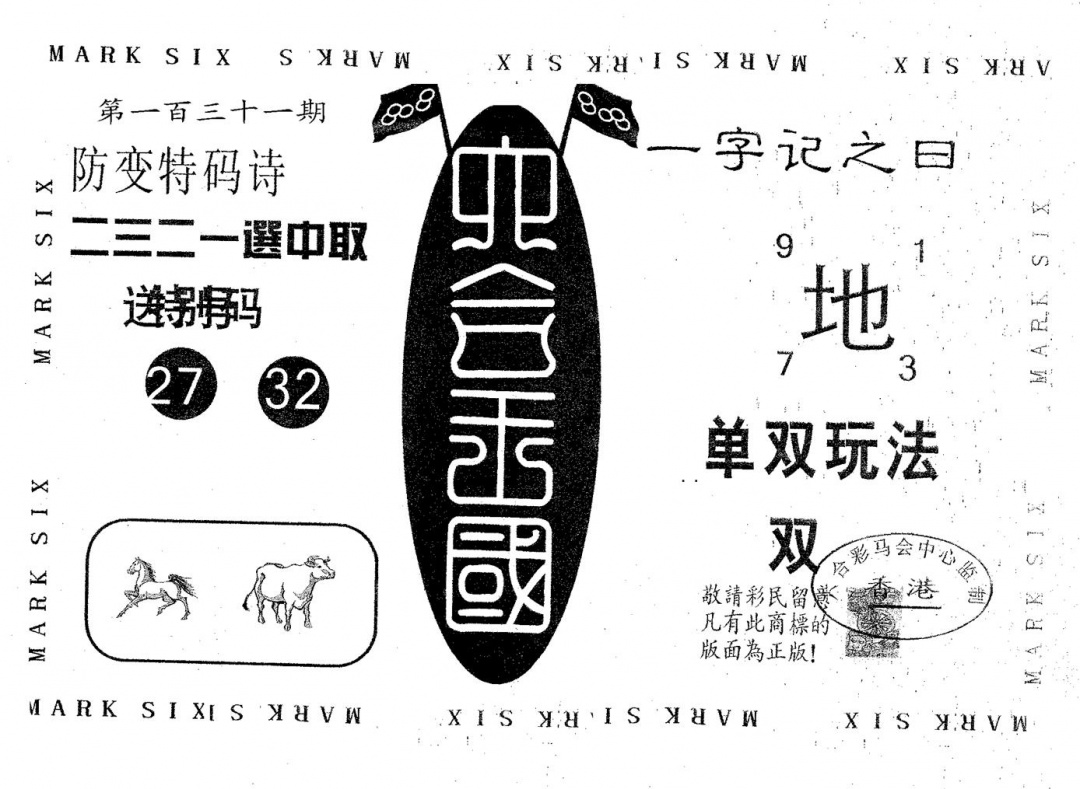 MARK SIX S KRAM XIS KRAM SIX KRAM XIS KRAM
第一百三十一期
防变特码诗
二三二一選中取
送特别码
27 32
MARK SIX
MARK SIX
六合王國
一字记之曰
9 1
地
7 3
单双玩法
双
敬請彩民留意
凡有此商標的
版面為正版!
六合彩马会中心监制
香港
MARK SIX
MARK SIX
MARK SIX